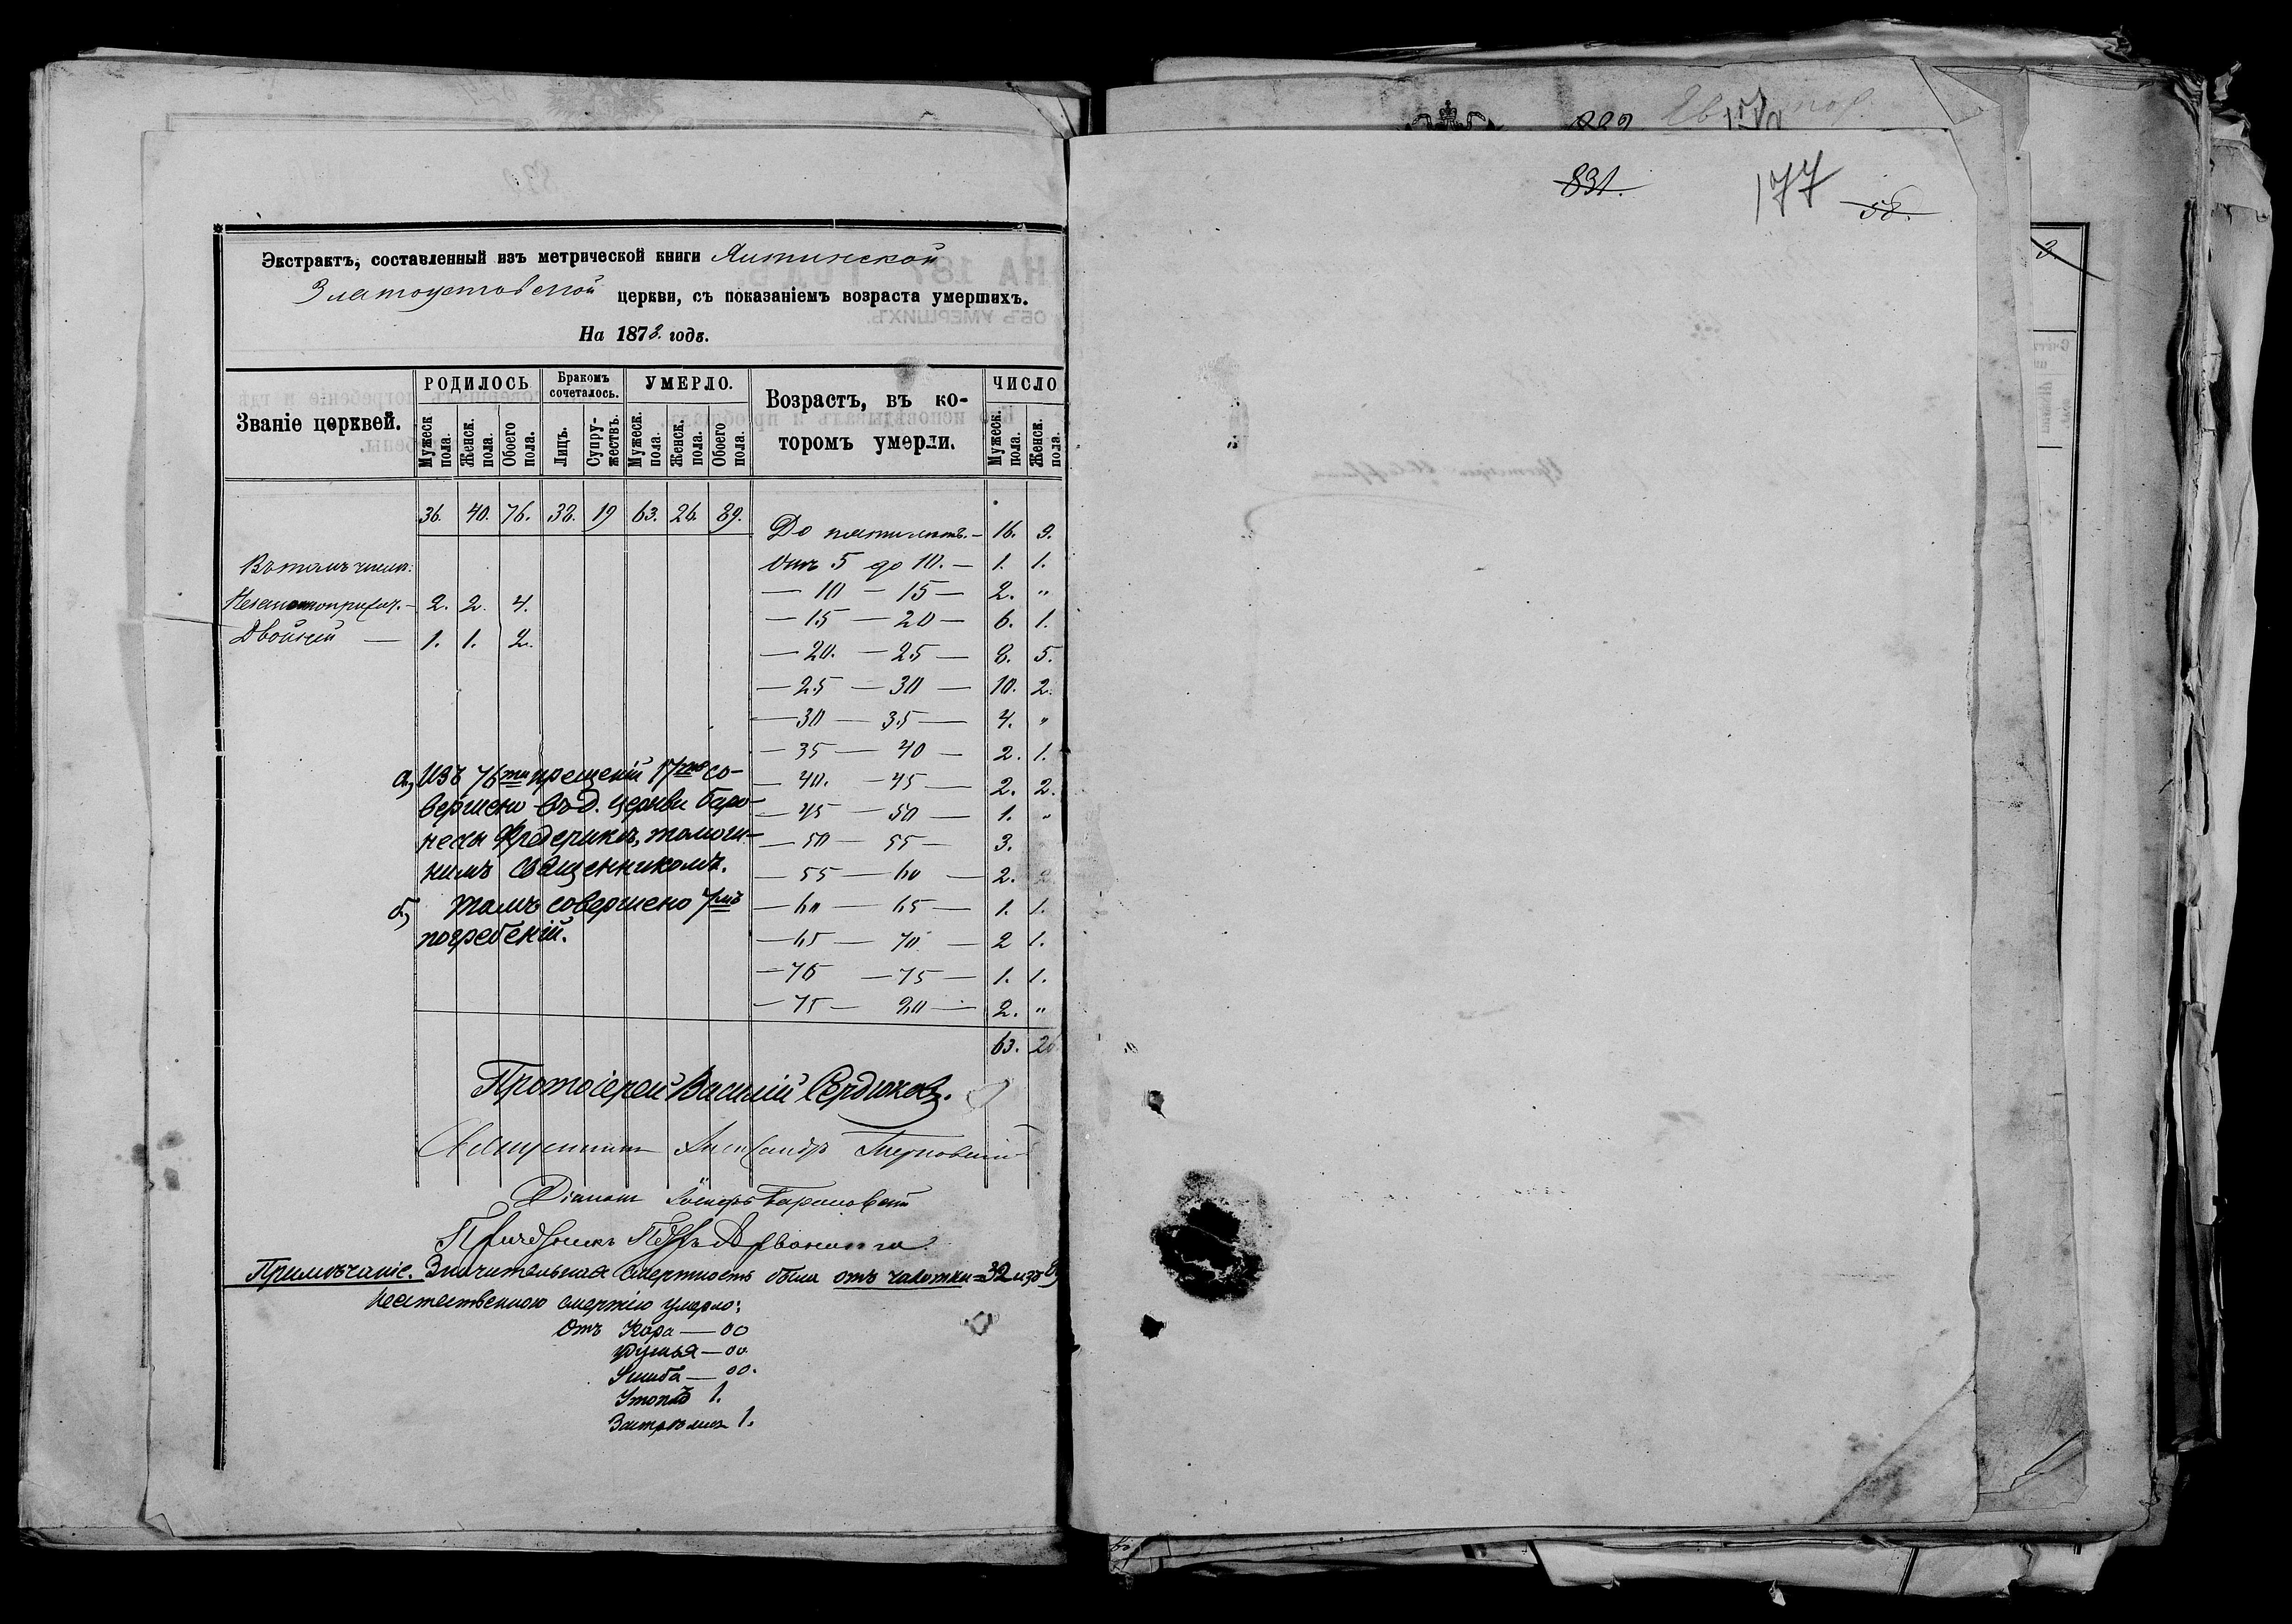 Экстрактъ, составленный изъ метрической книги Ялтинской
Златоустовской церкви, съ показаніемъ возраста умершихъ.
На 1878. годъ.
Званіе церквей. РОДИЛОСЬ Бракомъ сочеталось. УМЕРЛО. Возрастъ, въ ко- ЧИСЛО
Мужеск. пола. Женск. пола. Обоего пола. Лицъ. Супру- жествъ. Мужеск. пола. Женск. пола. Обоего пола. торомъ умерли. Мужеск. пола. Женск. пола.
36. 40. 76. 38. 19 63. 26. 89.
До пяти лѣтъ. — 16. 9.
Въ томъ числѣ: Отъ 5 до 10. — 1. 1.
— 10 — 15 — 2. "
Незаконнорожд. — 2. 2. 4.
— 15 — 20 — 6. 1.
Двойней — 1. 1. 2.
— 20. — 25 — 8. 5.
— 25 — 30 — 10. 2.
— 30 — 35 — 4. "
— 35 — 40 — 2. 1.
а, Изъ 76ти крещеній 17 со-
— 40. — 45 — 2. 2.
вершено въ д. церкви баро-
— 45 — 50 — 1. "
несы Фредериксъ, тамош-
— 50 — 55 — 3.
нимъ священникомъ.
— 55 — 60 — 2.
б, Тамъ совершено 7
— 60 — 65 — 1. 1.
погребеній.
— 65 — 70 — 2 1.
— 70 — 75 — 1. 1.
— 75 — 80 — 2. "
63. 26
Протоіерей Василій Сердюковъ.
Священникъ Александръ Терновскій
Діаконъ Барановскій
Примѣчаніе. Значительная смертность была отъ чахотки = 32 изъ 89
Неестественною смертію умерло:
Отъ — 00
— 00.
Ушиба — 00.
1.
1.
831.
177
58.